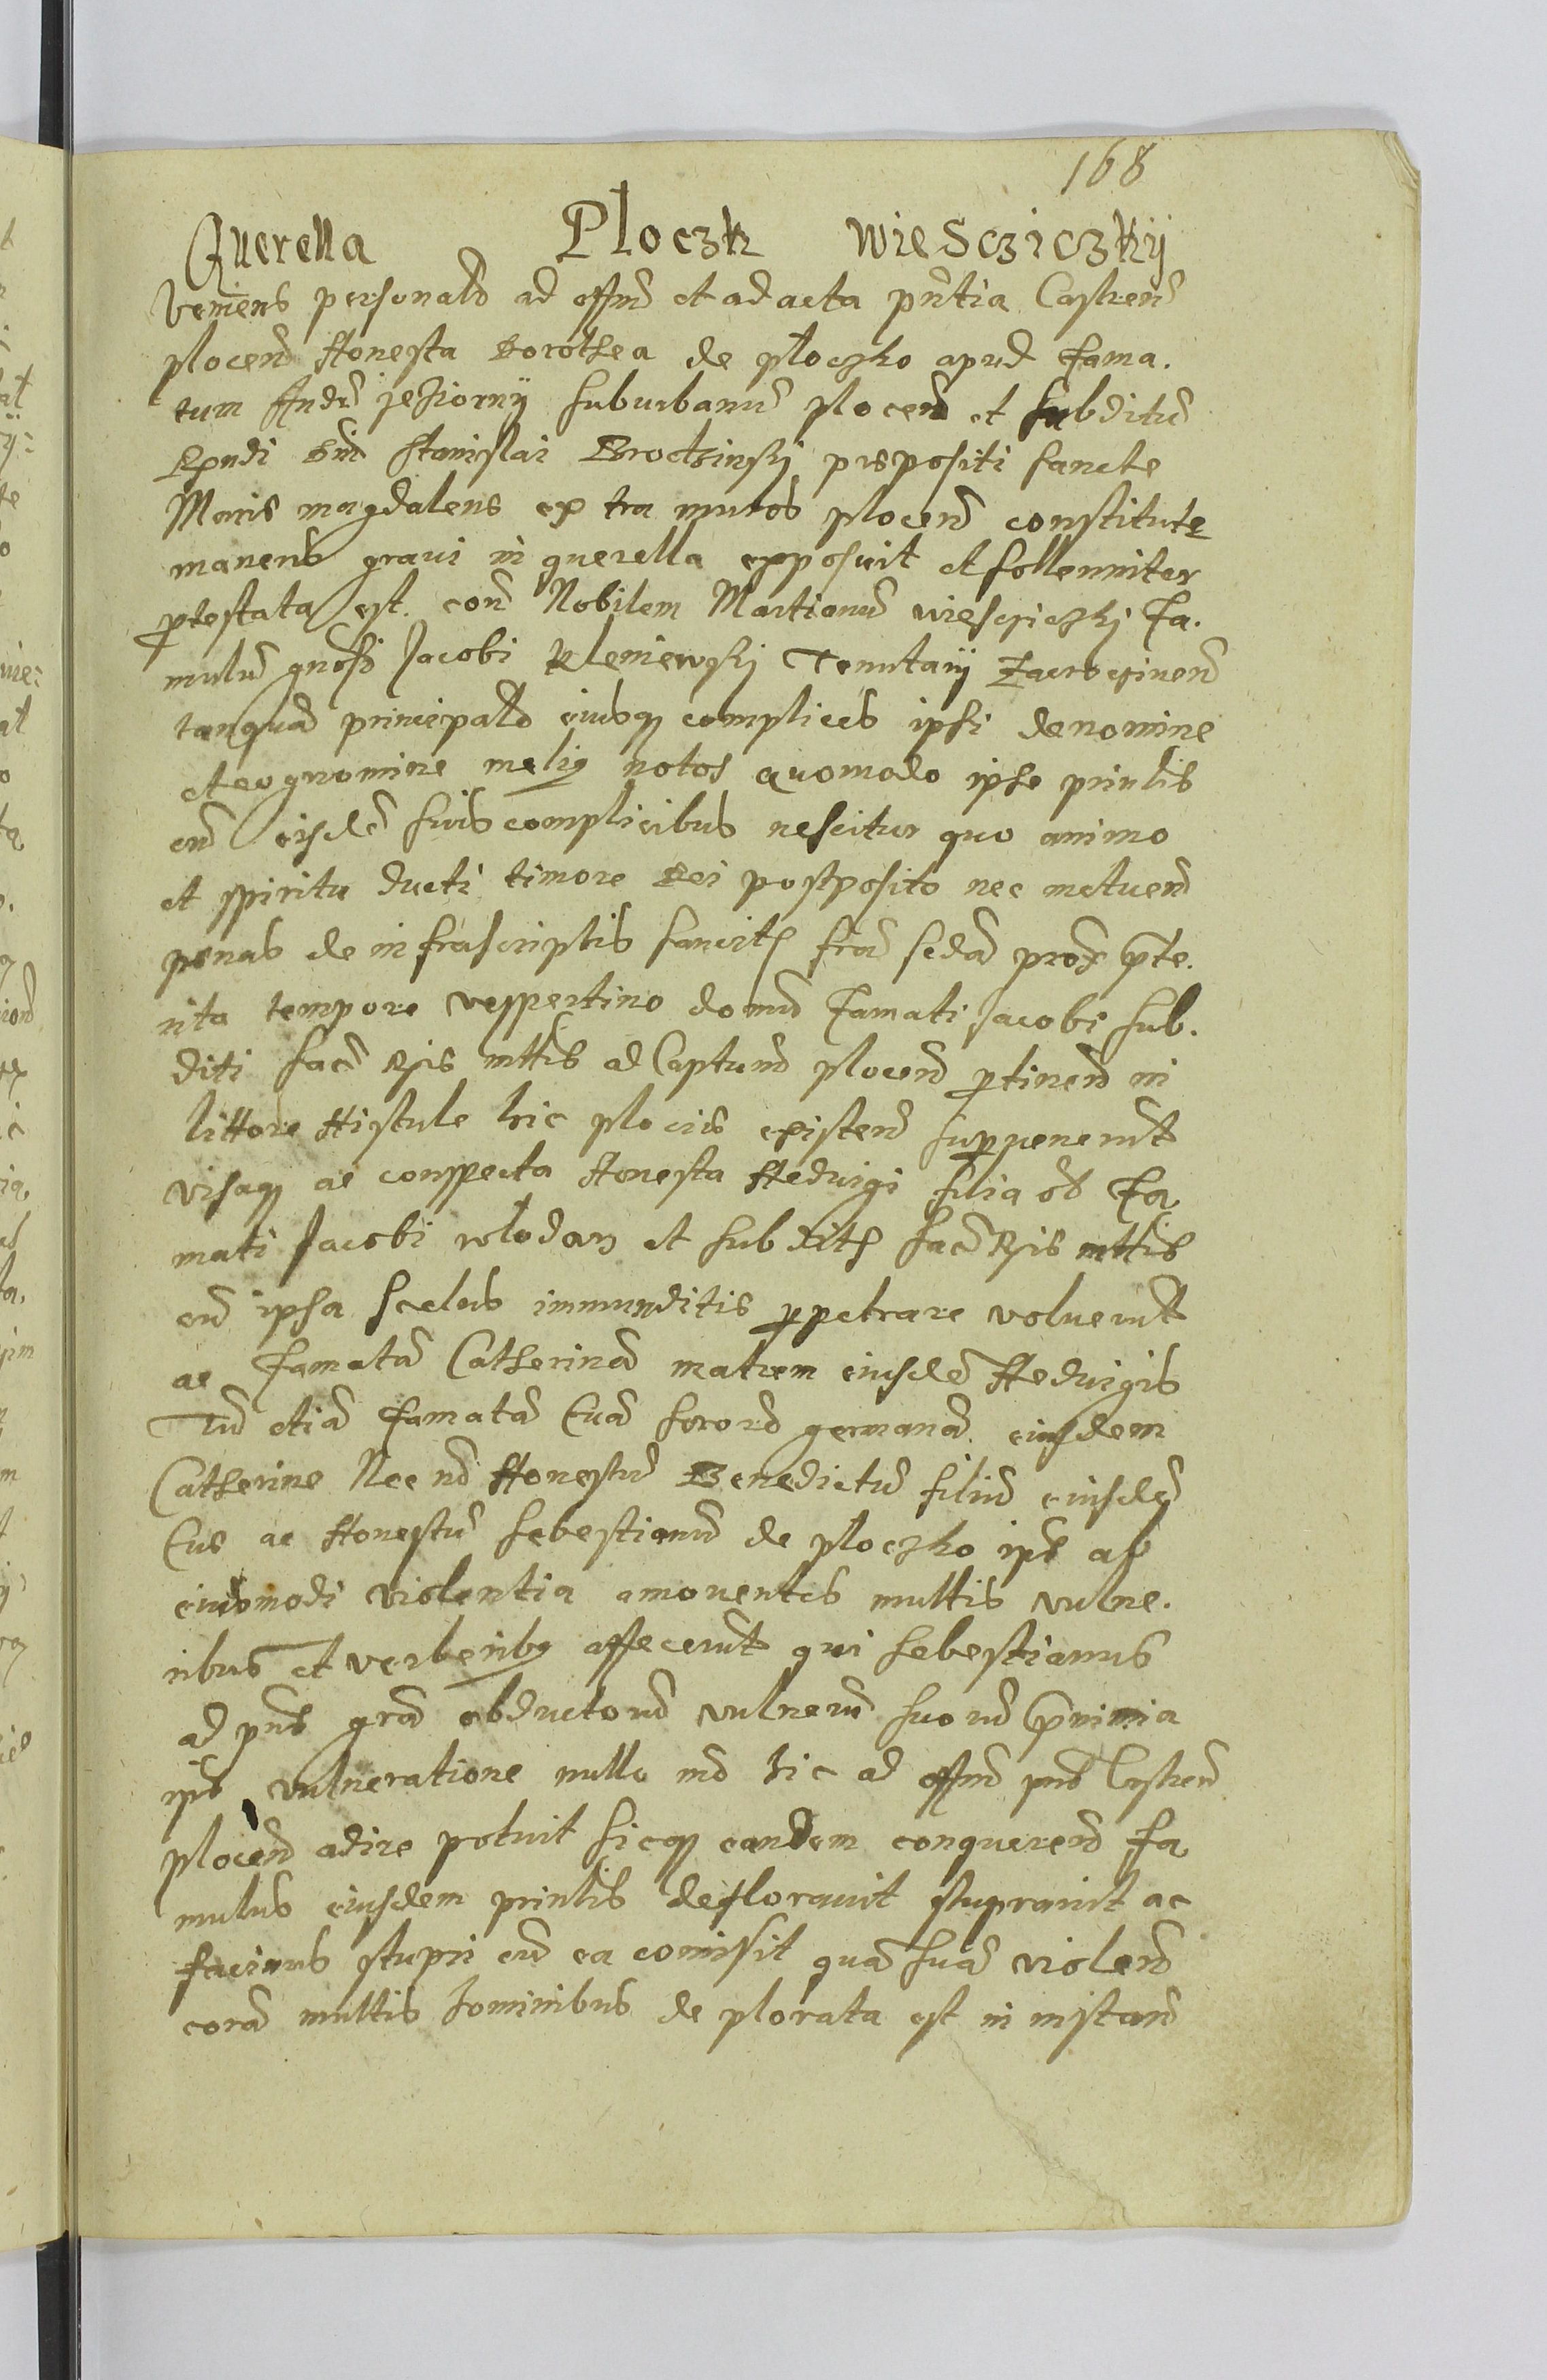 168
Querella Ploczk Wiescziczkij
Veniens personalr ad offm et ad acta pntia Castren
plocen Honesta Dorothea de ploczko apud fama.
tum Andr Jeziornij suburbanu plocen et subditu
Rndi Dni Stanislai Brochinskj prepositi sancte
Marie magdalene ex tra muros plocen constitute
manens graui in querella exposuit et sollenniter
ptestata est. con Nobilem Martianu Wiescziczkj fa.
mulu gnosi Jacobi Kleniewskj Tenutarij Zacrocinen
tanqua principale eiusq complices ipsi de nomine
et cognomine meliq notos Quomodo ipse prinlis
cu eisde suis complicibus nescitur quo animo
et spiritu ducti timore Dei postposito nec metuen
penas de infrascriptis sancit fria scda prox pte.
rita tempore vespertino domu famati Jacobi sub.
diti sac Rgis mttis ad Castrum plocen ptinen in
littore Histule hic plocie existen superuenerut
visaq ac conspecta Honesta Hedvigi filia ss fa
mati Jacobi wlodarz et subdit sac Rgis mttis
cu ipsa scelus immunditie ppetrare voluerut
ac famata Catherina matrem eiusde Hedvigis
Tu etia famata Eua soror germana eiusdem
Catherine Nec no Honestu Benedictu filiu eiusde
Eue ac Honestu Sebestianu de ploczko ips ab
eiusmodi violentia amouentes multis vulne.
ribus et verberibq affecerut qui Sebestianus
ad pns gra obductoru vulneru suoru pnimia
ips vulneratione nullo mo hic ad offm pns Castren
plocen adire potuit sicq eandem conqueren fa
mulus eiusdem prinlis deflorauit stuprauit ac
facinus stupri cu ea comisit qua sua violen
cora multis hominibus de plorata est in instan